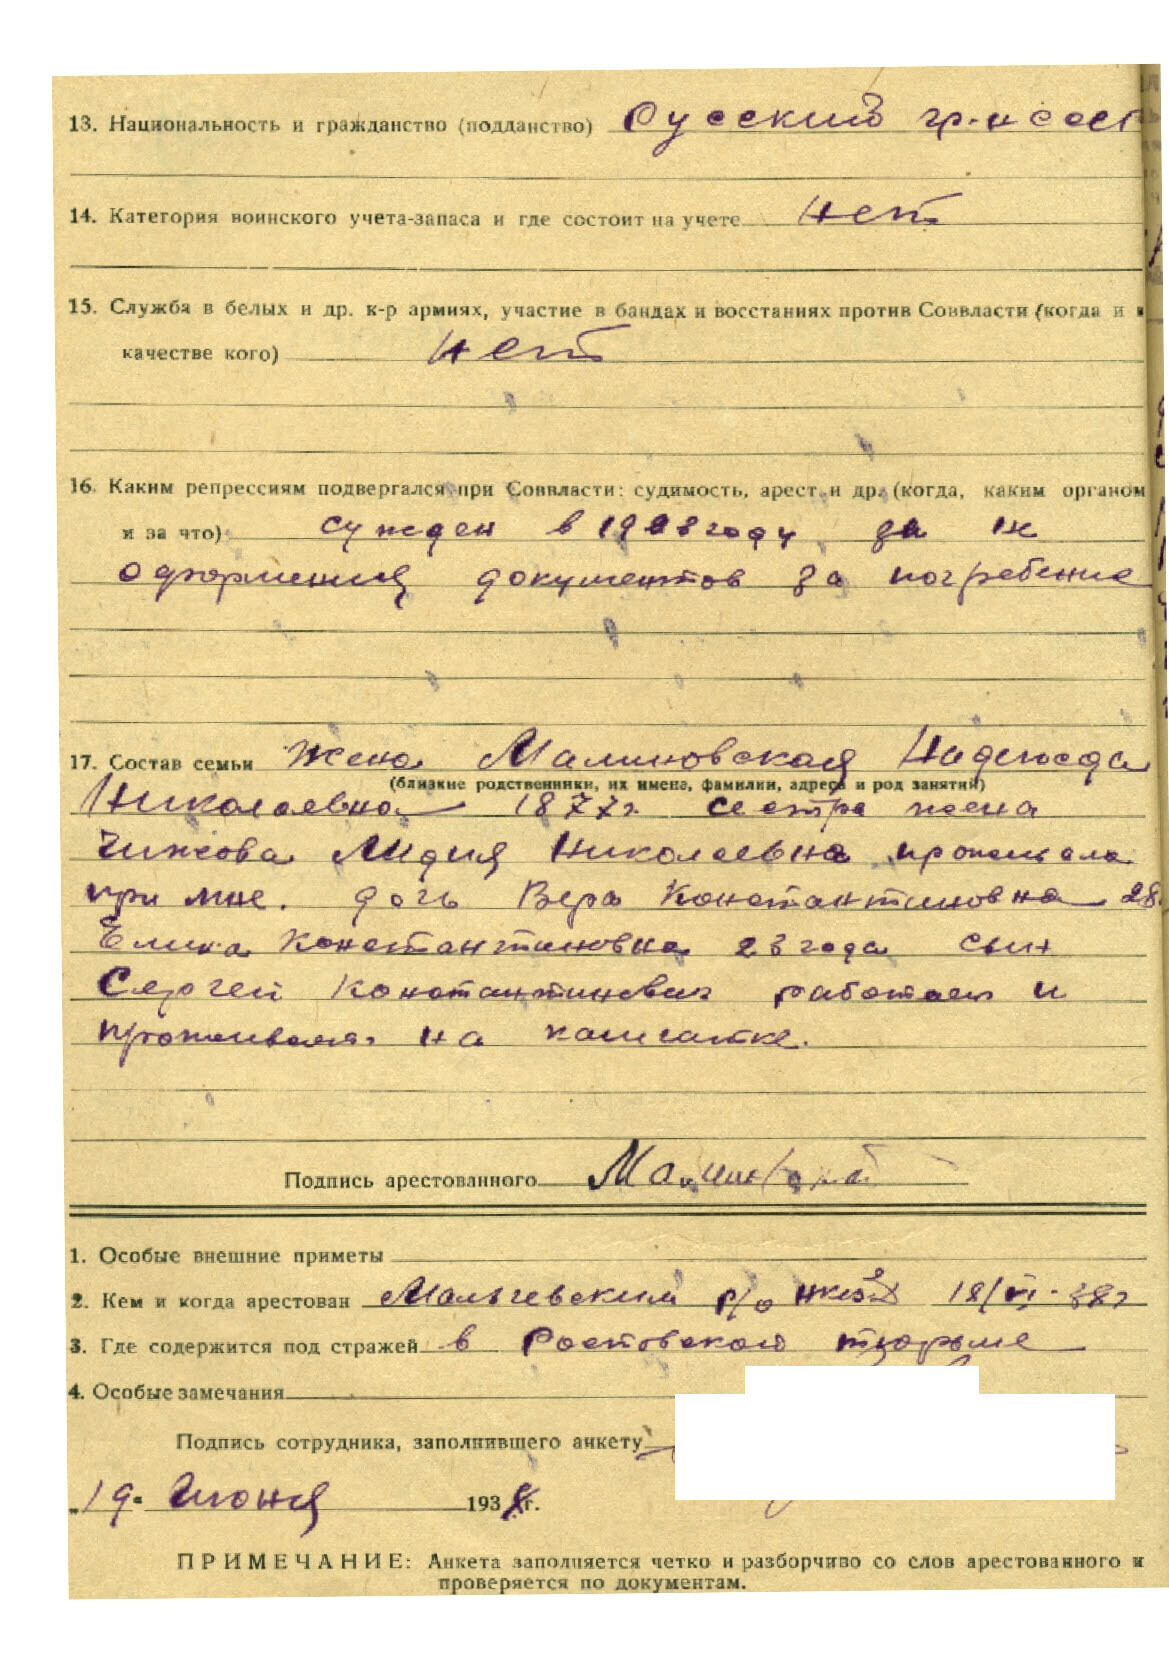 13. Национальность и гражданство (подданство) Русский гр-н ссс
14. Категория воинского учета-запаса и где состоит на учете нет
15. Служба в белых и др. к-р армиях, участие в бандах и восстаниях против Соввласти (когда и в
качестве кого) нет
16. Каким репрессиям подвергался при Соввласти: судимость, арест и др. (когда, каким органом
и за что) сужден в году за не
оформления документов за погребение
17. Состав семьи Жена Малиновская Надежда
(близкие родственники, их имена, фамилии, адреса и род занятий)
Николаевна 1877г. сестра жена
Чижова Лидия Николаевна проживала
при мне. дочь Вера Константиновна 28
Константиновна 23 года сын
Сергей Константинович работает и
проживает на
Подпись арестованного
1. Особые внешние приметы
2. Кем и когда арестован Мальчевским р/о НКВД 18/VI-38г
3. Где содержится под стражей в Ростовской тюрьме
4. Особые замечания
Подпись сотрудника, заполнившего анкету
„19" Июня 1938г.
ПРИМЕЧАНИЕ: Анкета заполняется четко и разборчиво со слов арестованного и
проверяется по документам.